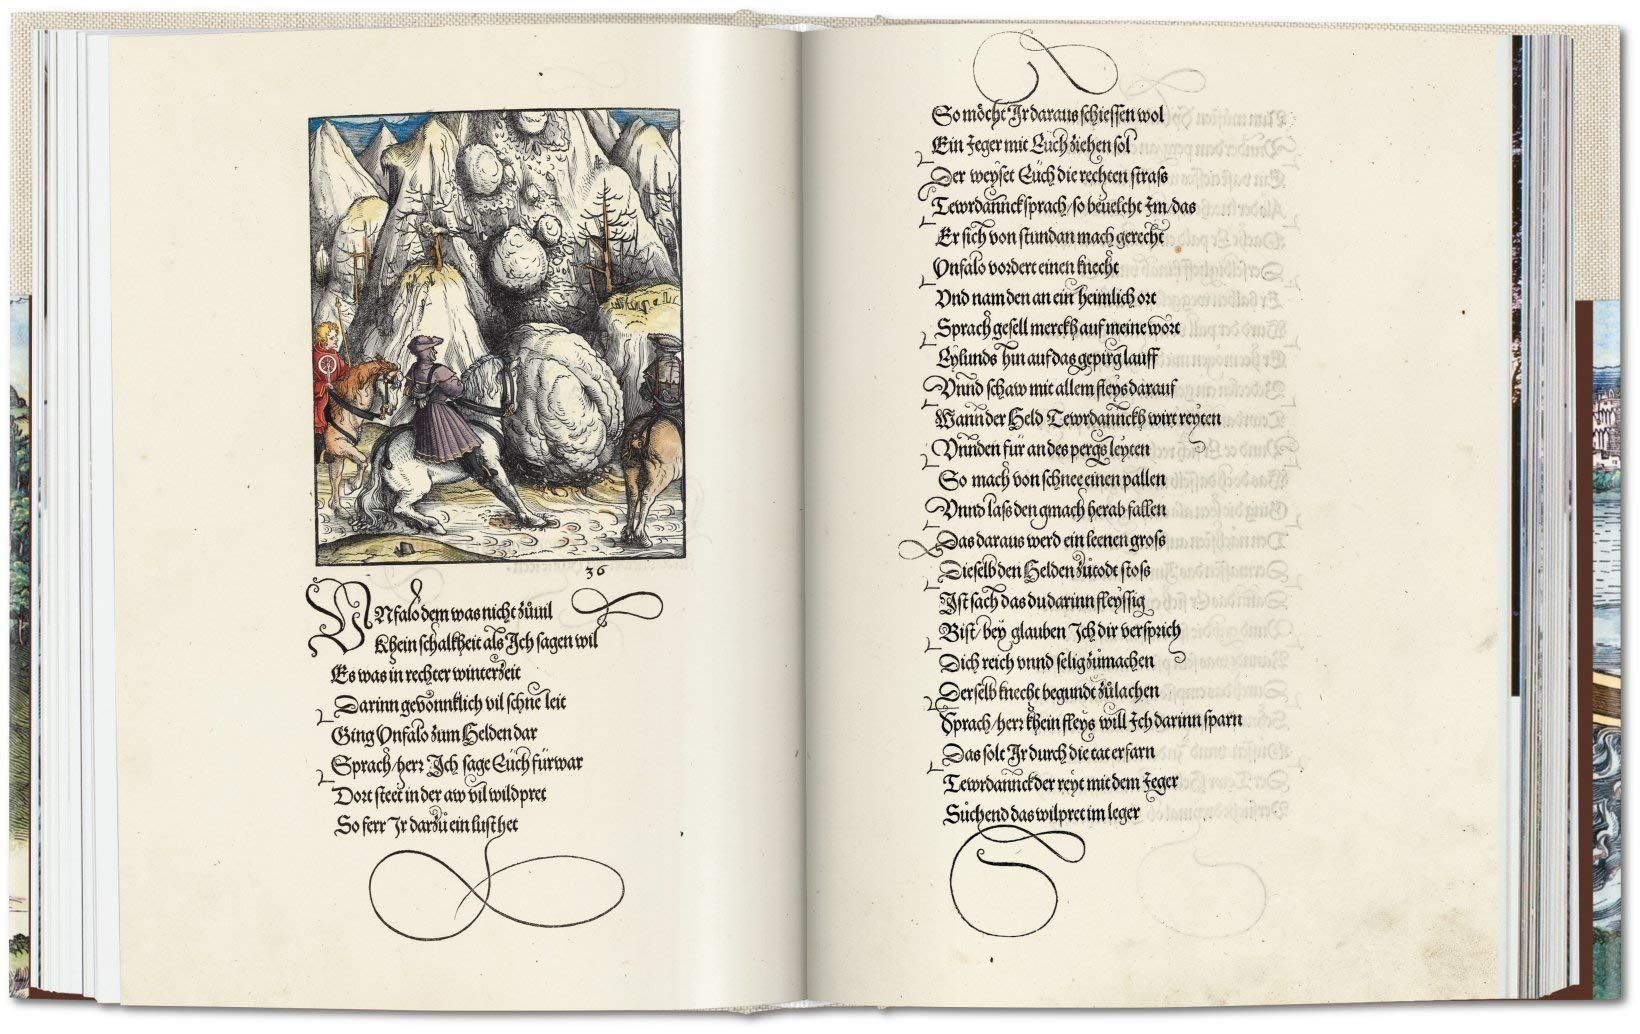 36
Unfalo dem was nicht zůuil
Khein schalkheit als Ich sagen wil
Es was in rechter winterzeit
Darinn gewonnklich vil schne leit
Ging Vnfalo zum Helden dar
Sprach/herr Ich sage Euch fürwar
Dort steet in der aw vil wildpret
So ferr Ir darzů ein lust het
So möcht Ir daraus schiessen wol
Ein Jeger mit Euch ziehen sol
Der weyset Euch die rechten strass
Tewrdannck sprach/so beuelcht Im/das
Er sich von stundan mach gerecht
Vnfalo vordert einen knecht
Vnd nam den an ein heimlich ort
Sprach gesell merckh auf meine wort
Eylunds hin auf das gepirg lauff
Vnnd schaw mit allem fleys darauf
Wann der Held Tewrdannckh wirt reyten
Vnnden für an des pergs leyten
So mach von schnee einen pallen
Vnnd lass den gmach herab fallen
Das daraus werd ein leenen gross
Dieselb den Helden zůtodt stoss
Ist sach das du darinn fleyssig
Bist/bey glauben Ich dir versprich
Dich reich vnnd selig zůmachen
Derselb knecht begundt zůlachen
Sprach/herr khein fleys will Ich darinn sparn
Das solt Ir durch die tat erfarn
Tewrdannck der reyt mit dem Jeger
Sůchend das wilpret im leger